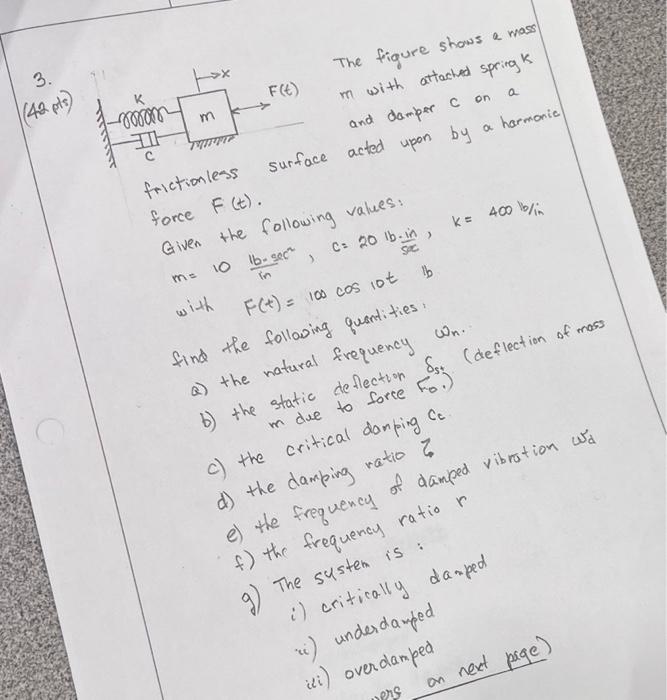 3.
(42 pts)
x
K
m
F(t)
C
The figure shows a mass
m with attached spring K
and damper c on a
frictionless surface acted upon by a harmonic
force F(t).
Given the following values:
m= 10 lb-sec²/in , C= 20 lb-in/sec , K= 400 lb/in
with F(t) = 100 cos 10t lb
find the following quantities:
a) the natural frequency ωn.
b) the static deflection δst (deflection of mass
m due to force F₀.)
c) the critical damping Cc.
d) the damping ratio ζ
e) the frequency of damped vibration ωd
f) the frequency ratio r
g) The system is :
i) critically damped
ii) underdamped
iii) overdamped
on next page)